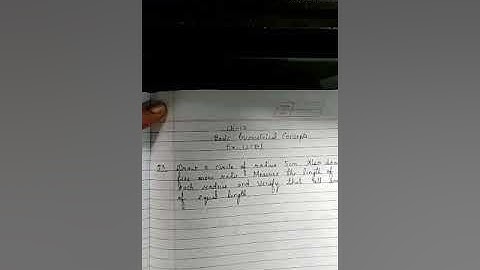 Basic Geometrical Concepts
Draw a circle of radius 5cm. Also draw
five more radii. Measure the length of
each radius and verify that all are
of equal length.